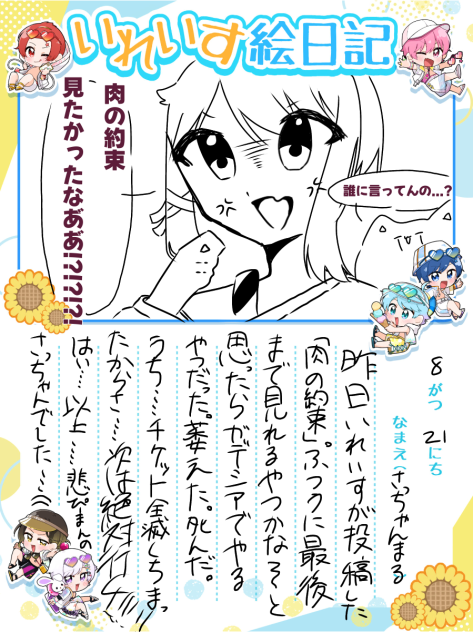 いれいす絵日記
肉の約束
見たかったなあ゛あ゛!?!?!?!
誰に言ってんの…?
8がつ 21にち
なまえ(さっちゃんまる
昨日いれいすが投稿した
「肉の約束」。ふつうに最後
まで見れるやつかな?と
思ったらガデシアでやる
やつだった。萎えた。死んだ。
うち……チケット全滅しちまっ
たからさ…次は絶対行く!!!!
はい…以上…悲ぴまんの
さっちゃんでした……